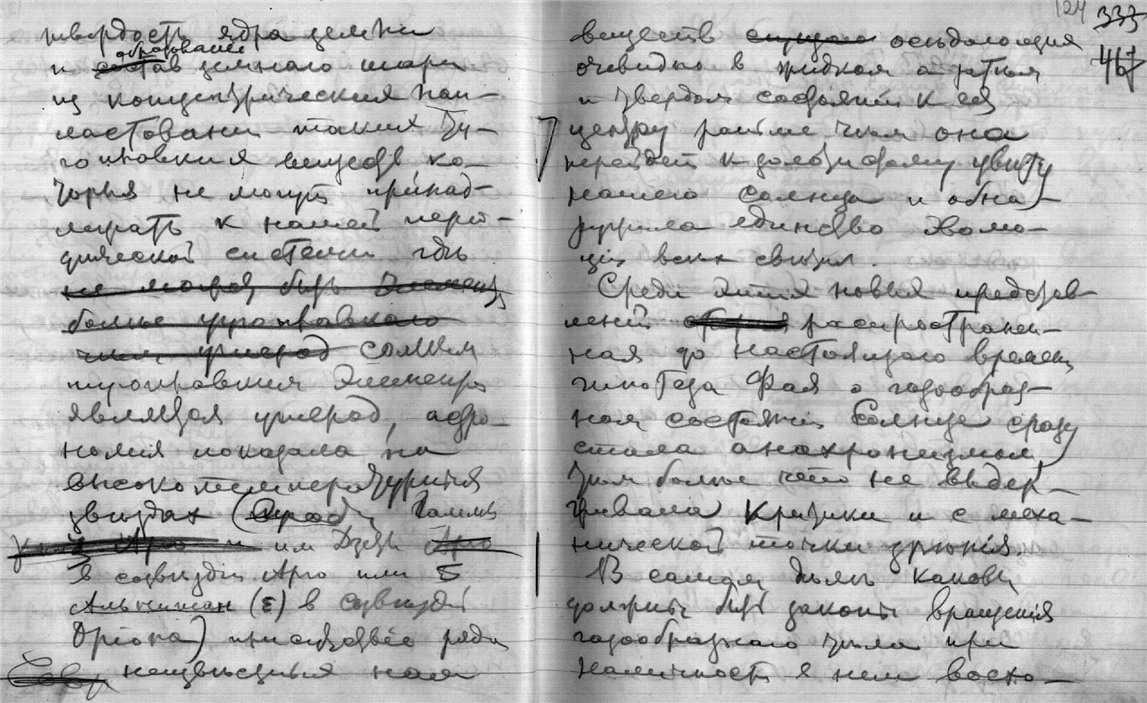 твердость ядра земли
образование
и состав земнаго шара
из концентрических нап-
ластований таких ту-
гоплавких веществ ко-
торыя не могут принад-
лежать к нашей перио-
дической системы где
не может быть элемент
более тугоплавкаго
чем углерод самым
тугоплавким элементом
является углерод, астро-
номия показала на
высокотемпературных
звездах (Арго Гамма
им Дзета Арго
в созвездии Арго или
Альнитам (ε) в созвездии
Ориона) присутствие ряда
неизвестных нам
124 333
467
веществ осядающия
очевидно в жидком а затем
и твердом состоянии к ея
центру раньше чем она
перейдет к золотистому цвету
нашего солнца и обна-
ружила единство эволю-
ции всех светил.
Среди этих новых представ-
лений распространен-
ная до настоящаго времени
гипотеза Фая о газообраз-
ном состоянии Солнца сразу
стала анахронизмом
тем более что не выдер-
живала критики и с меха-
нической точки зрения.
В самом деле каковы
должны быть законы вращения
газообразнаго тела при
наличности в нем восхо-